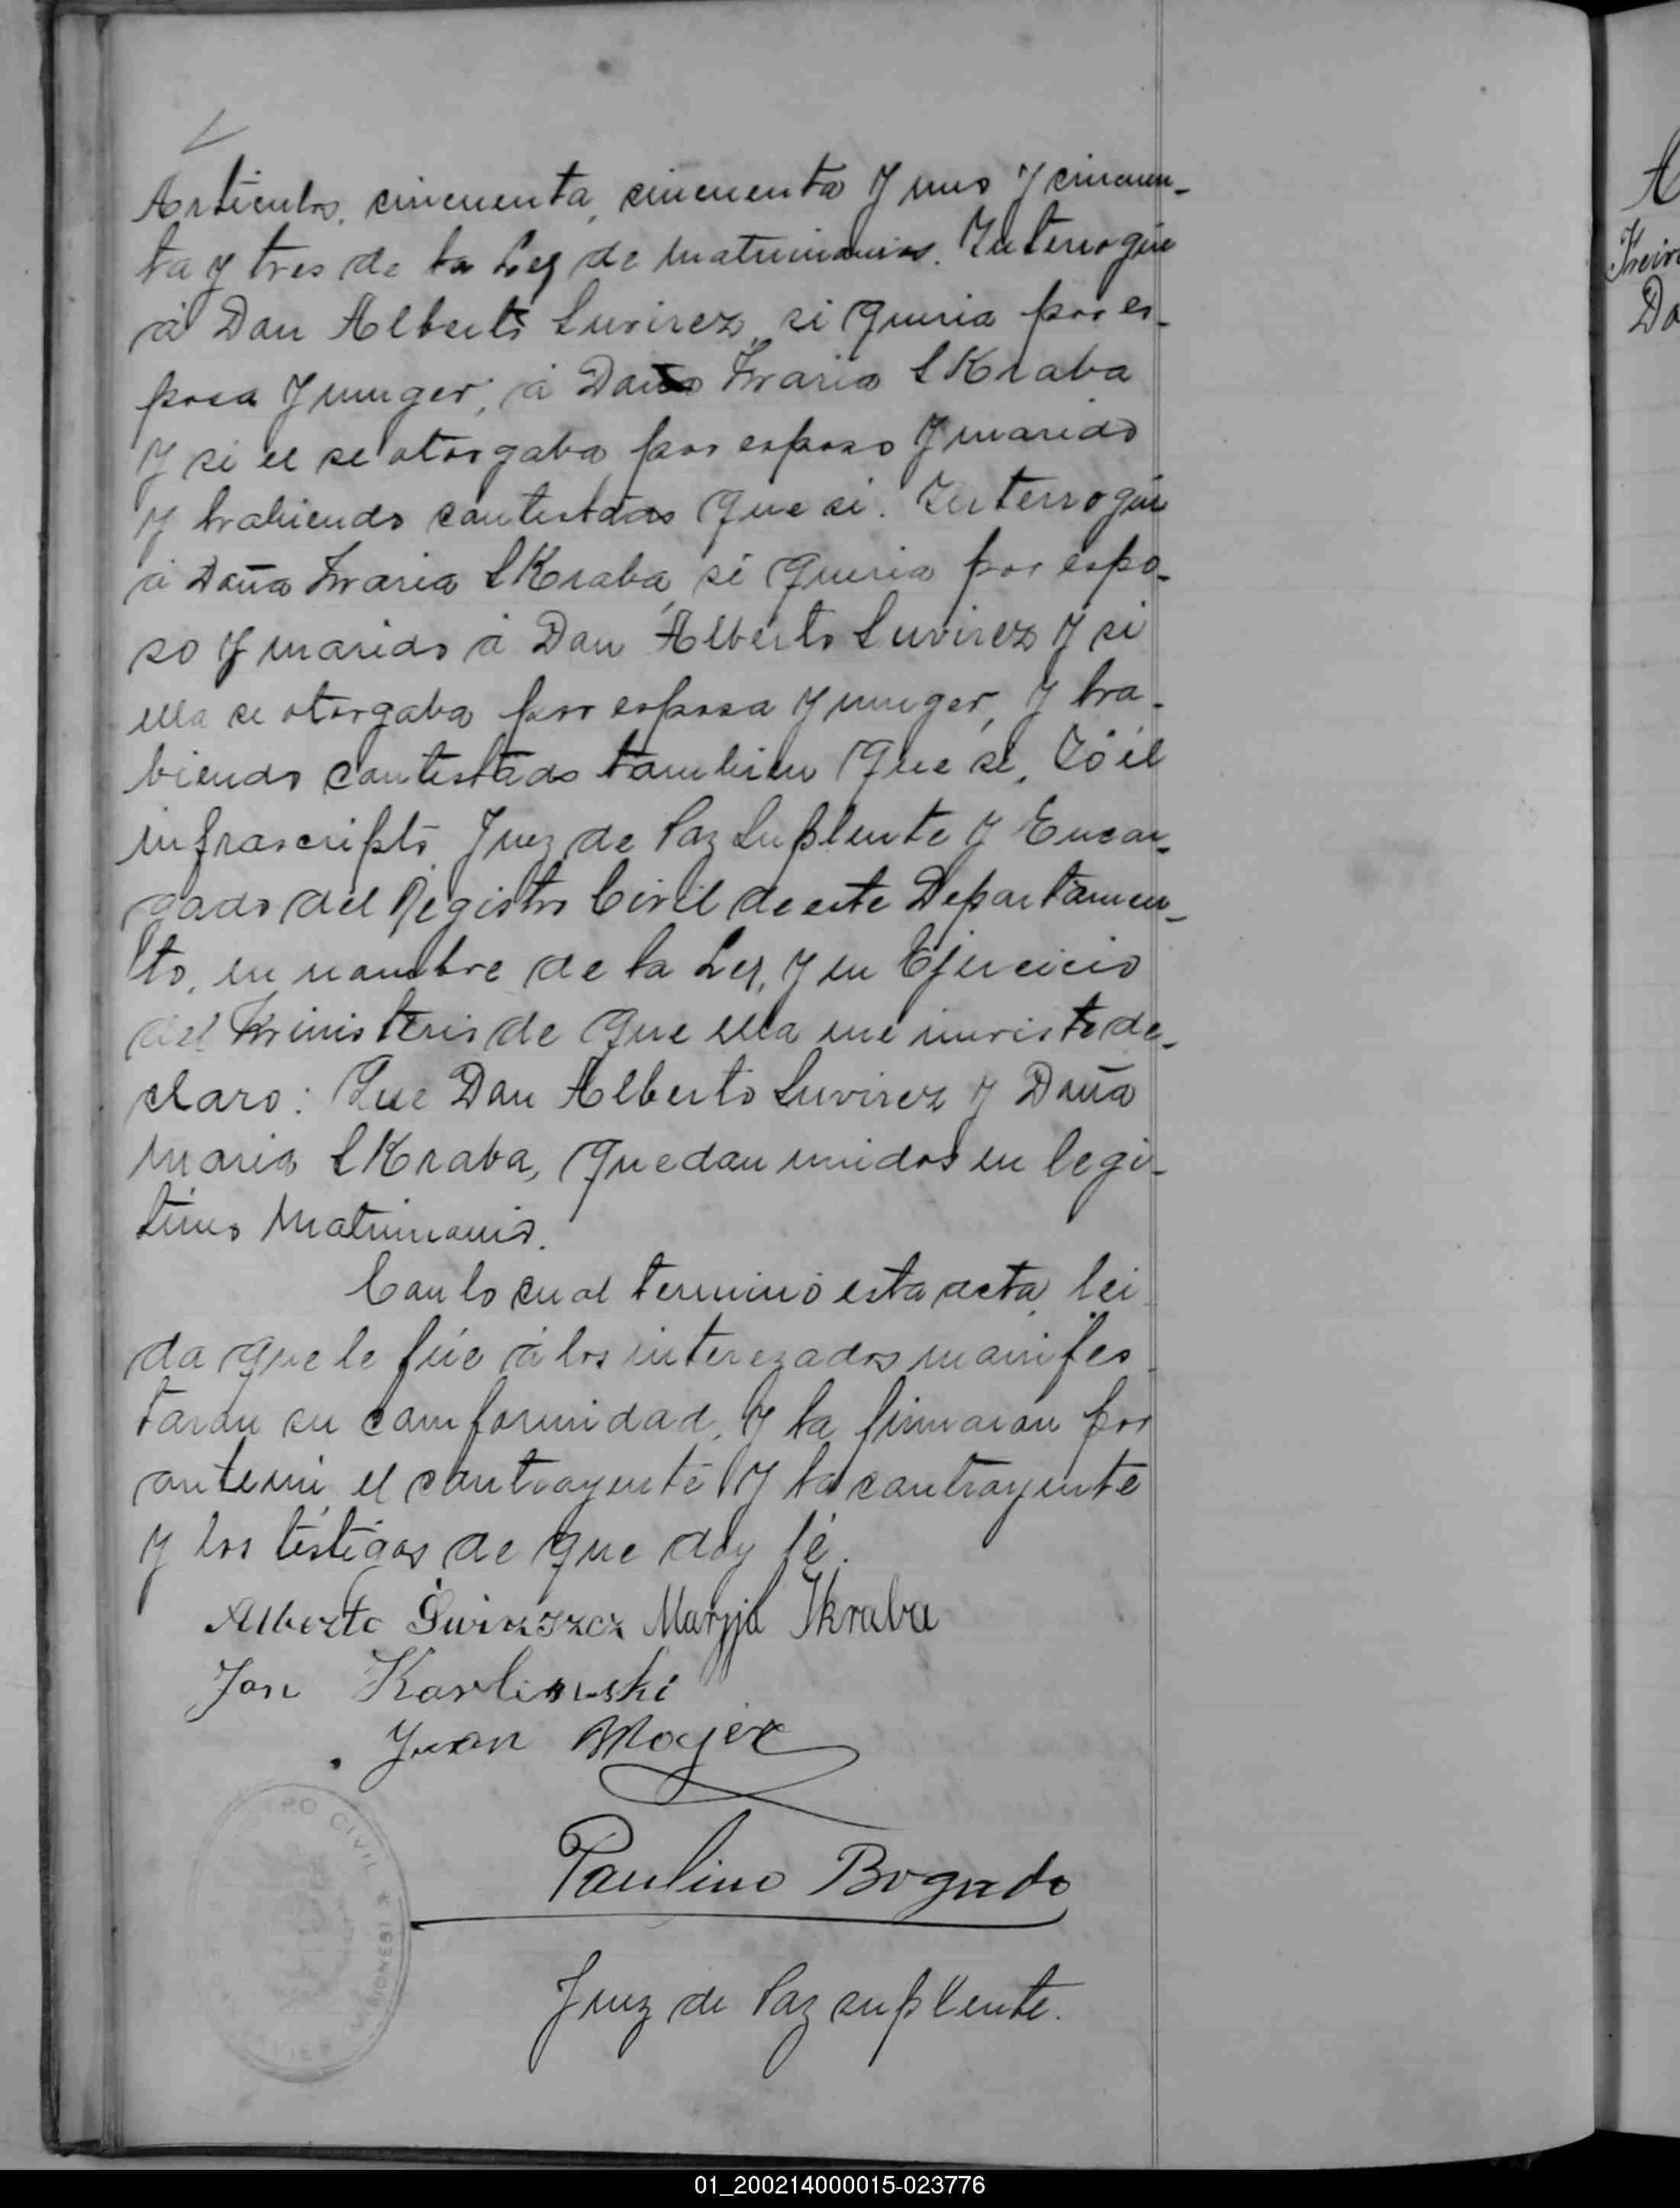 Artículos, cincuenta, cincuenta y uno y cincuen-
ta y tres de la Ley de Matrimonios. Interrogúe
á Don Alberto Suvirez, si queria por es-
posa y muger, á Doña Maria SKraba
y si el se otorgaba por esposo y marido
y habiendo contestado que si. Interrogúe
á Doña Maria SKraba, si queria por espo-
so y marido á Don Alberto Suvirez y si
ella se otorgaba por esposa y muger, y ha-
biendo contestado tambien que si, Yó él
infrascripto Juez de Paz Suplente y Encar-
gado del Registro Civil de este Departamen-
to, en nombre de la Ley, y en Ejercicio
del Ministerio de que ella me inviste de-
claro: Que Don Alberto Suvirez y Doña
Maria SKraba, quedan unidos en legi-
timo Matrimonio.
Con lo cual terminó esta acta, lei-
da que le fúe á los interezados manifes-
taron su comformidad, y la firmaron por
ante mi, el contrayente y la contrayente
y los téstigos de que doy fé.
Alberto Świrszcz Maryja Skraba
Jan Karlinski
Juan Mayer
Paulino Bogado
Juez de Paz suplente.
RO CIVIL
MISIONES
VIER
A
Do
01_200214000015-023776